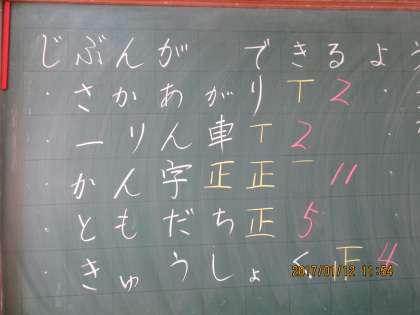 じぶんが できるよう
・さかあがり 丅 2
・一りん車 丅 2
・かん字 正 正 一 11
・ともだち 正 5
・きゅうしょく 正 4
2017/01/12 11:54